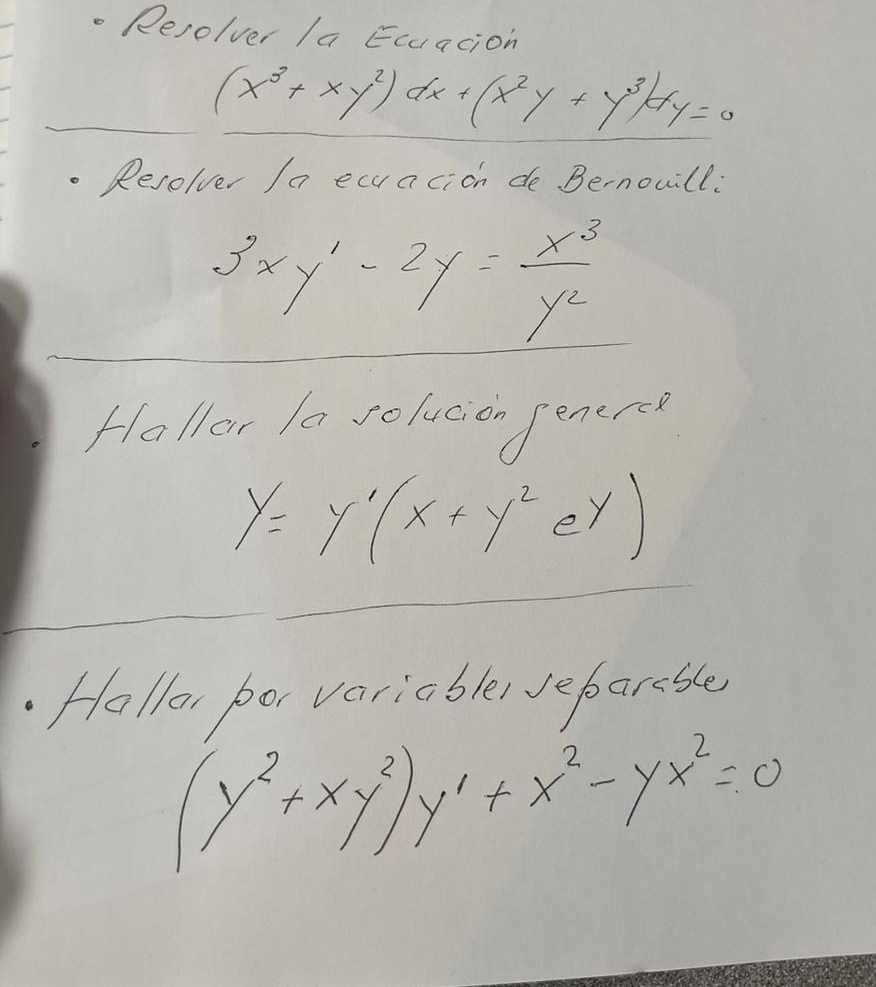 • Resolver la Ecuación
(x³ + xy²) dx + (x²y + y³)dy = 0
• Resolver la ecuación de Bernouilli
3xy' - 2y = x³/y²
• Hallar la solución general
y = y'(x + y² eʸ)
• Hallar por variables separables
(y² + xy²)y' + x² - yx² = 0